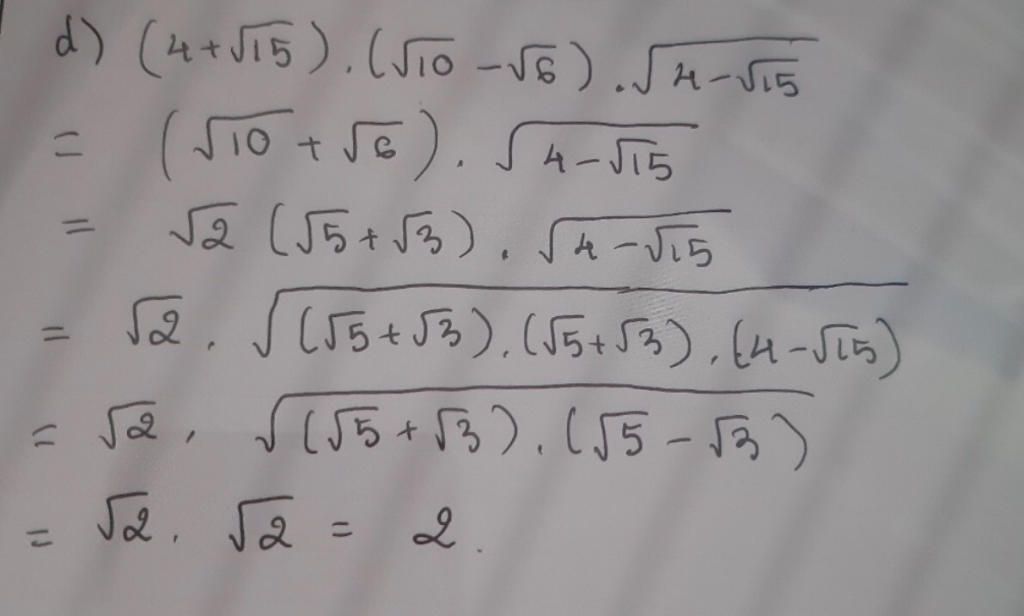 d) (4+√15).(√10-√6).√(4-√15)
= (√10+√6).√(4-√15)
= √2(√5+√3).√(4-√15)
= √2.√((√5+√3).(√5+√3).(4-√15))
= √2.√((√5+√3).(√5-√3))
= √2.√2 = 2.